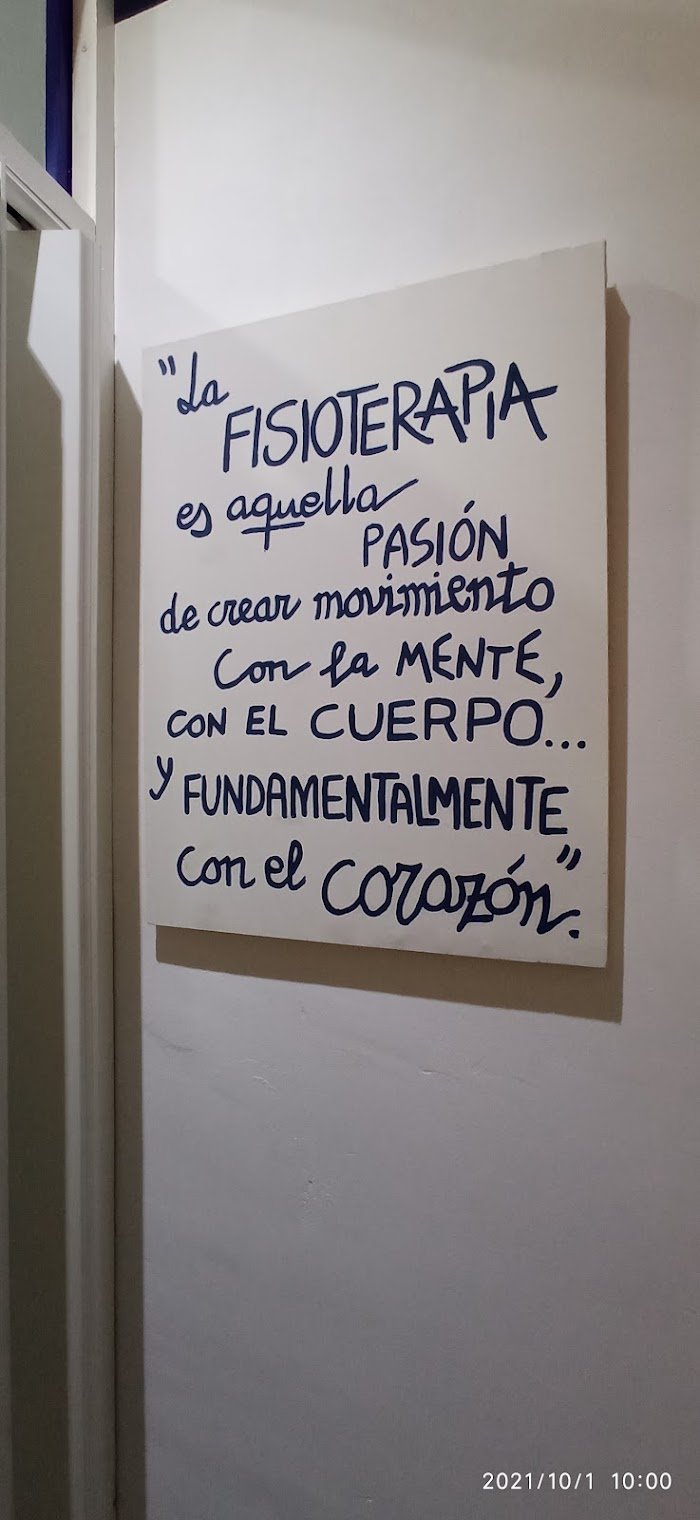 "La
FISIOTERAPIA
es aquella
PASIÓN
de crear movimiento
con la MENTE,
CON EL CUERPO...
y FUNDAMENTALMENTE
con el corazón".
2021/10/1 10:00